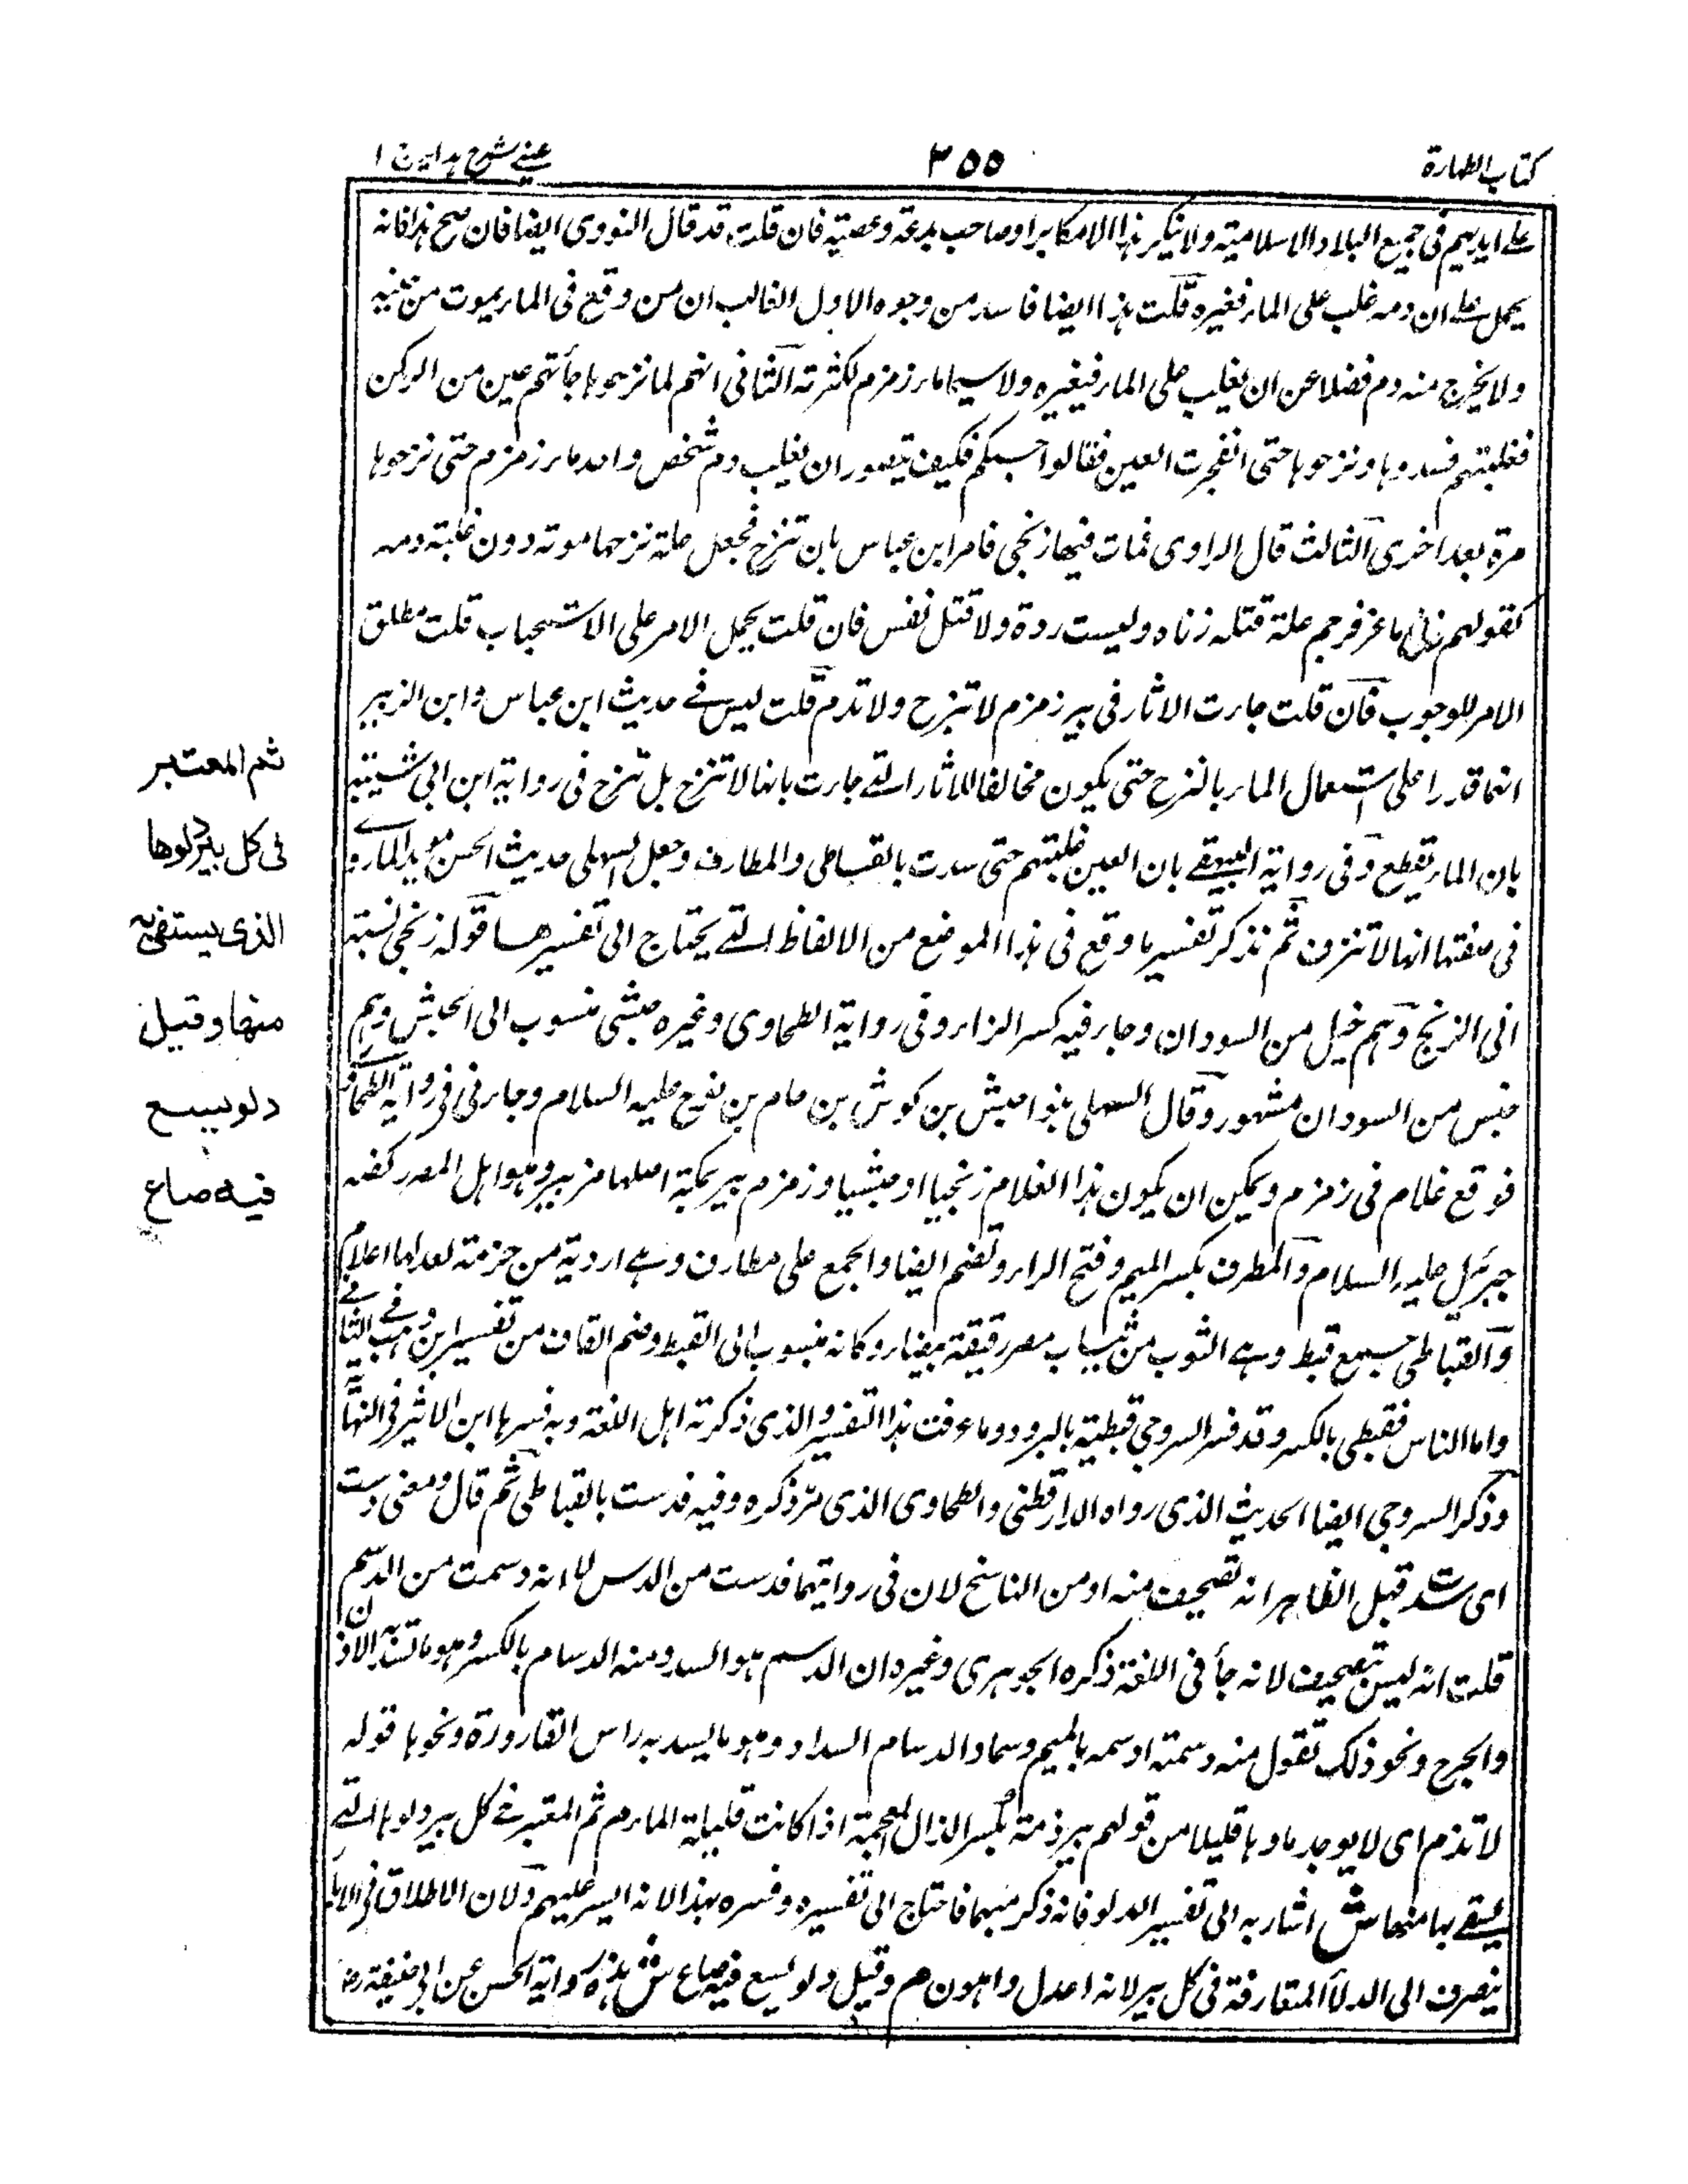 كتاب الطهارة
٣٥٥
عيني شرح هداية ج ١
على ايديهم في جميع البلاد الاسلامية ولا ينكر هذا الا مكابر او صاحب بدعة وعصبية فان قلت قد قال النووى ايضا فان صح هذا فانه
يحمل على ان دمه غلب على الماء فغيره قلت هذا ايضا فاسد من وجوه الاول الغالب ان من وقع فى الماء يموت من
ولا يخرج منه دم فضلا عن ان يغلب على الماء فيغيره ولا سيما ماء زمزم لكثرته الثانى انهم لما نزحوها جأتهم عين من الركن
فغلبتهم فسدوها ونزحوها حتى انفجرت العين فقالوا حسبكم فكيف يتصور ان يغلب دم شخص واحد ماء زمزم حتى نزحوها
مرة بعد اخرى الثالث قال الراوى فمات فيها زنجى فامر ابن عباس بان تنزح فجعل علة نزحها موته دون غلبته دمه
كقولهم زنى ماعز فرجم علة قتله زناه وليست ردة ولا قتل نفس فان قلت يحمل الامر على الاستحباب قلت مطلق
الامر للوجوب فان قلت جاءت الاثار فى بير زمزم لا تنزح ولا تذم قلت ليس فى حديث ابن عباس وابن الزبير
انما قدرا على استعمال الماء بالنزح حتى يكون مخالفا للاثار التى جاءت بانها لا تنزح بل تنزح فى رواية ابن ابى شيبة
بان الماء يقطع وفى رواية البيهقى بان العين غلبتهم حتى سدت بالقباطى والمطارف وجعل السهيلى حديث الحسن مؤيدا لما روى
فى صفتها انها لا تنزف ثم نذكر تفسير ما وقع فى هذا الموضع من الالفاظ التى يحتاج الى تفسيرها قوله زنجى نسبته
الى الزنج وهم خيل من السودان وجاء فيه كسر الزاء وفى رواية الطحاوى وغيره حبشى منسوب الى الحبش وهم
جنس من السودان مشهور وقال السهيلى بنوا حبش بن كوش بن حام بن نوح عليه السلام وجاء فى فى رواية الطحاوى
فوقع غلام فى زمزم ويمكن ان يكون هذا الغلام زنجيا او حبشيا وزمزم بير بمكة اصلها من بير وهو اهل المصر ركضه
جبرئيل عليه السلام والمطرف بكسر الميم وفتح الراء وتضم ايضا والجمع على مطارف وهى اردية من خز مته لعد لها اعلام
والقباطى جمع قبط وهى الثوب من ثياب مصر رقيقة بيضاء وكانه منسوب الى القبط وضم القاف من تفسير ابن وهب فى الثياب
واما الناس فقبطى بالكسر وقد فسر السروجى قبطية بالبرود وما عرفت هذا التفسير والذى ذكرته اهل اللغة وبه فسرها ابن الاثير فى النهاية
وذكر السروجى ايضا الحديث الذى رواه الدارقطنى والطحاوى الذى مر ذكره وفيه فدست بالقباطى ثم قال ومعنى دست
اى سدت قيل الظاهر انه تصحيف منه او من الناسخ لان فى روايتهما فدست من الدس لا انه دسمت من الدسم
قلت انه ليس بتصحيف لانه جأ فى اللغة ذكره الجوهرى وغيره ان الدسم هو السد ومنه الدسام بالكسر وهو ما تسد به الاذن
والجرح ونحو ذلك تقول منه دسمته ادسمه بالميم دسما والدسام السداد وهو ما يسد به راس القارورة ونحوها قوله
لا تذم اى لا يوجد ماوها قليلا من قولهم بير ذمة بكسر الذال المعجمة اذا كانت قليلة الماء م ثم المعتبر فى كل بير دلوها التى
يستقى بها منها ش اشار به الى تفسير الدلو فانه ذكر مبهما فاحتاج الى تفسيره وفسره بهذا لانه ايسر عليهم ولان الاطلاق فى الدلاء
ينصرف الى الدلاء المتعارفة فى كل بير لانه اعدل واهون م وقيل دلو يسع فيه صاع ش هذه رواية الحسن عن ابى حنيفة رح
ثم المعتبر
فى كل بير دلوها
الذى يستقى به
منها وقيل
دلو يسع
فيه صاع